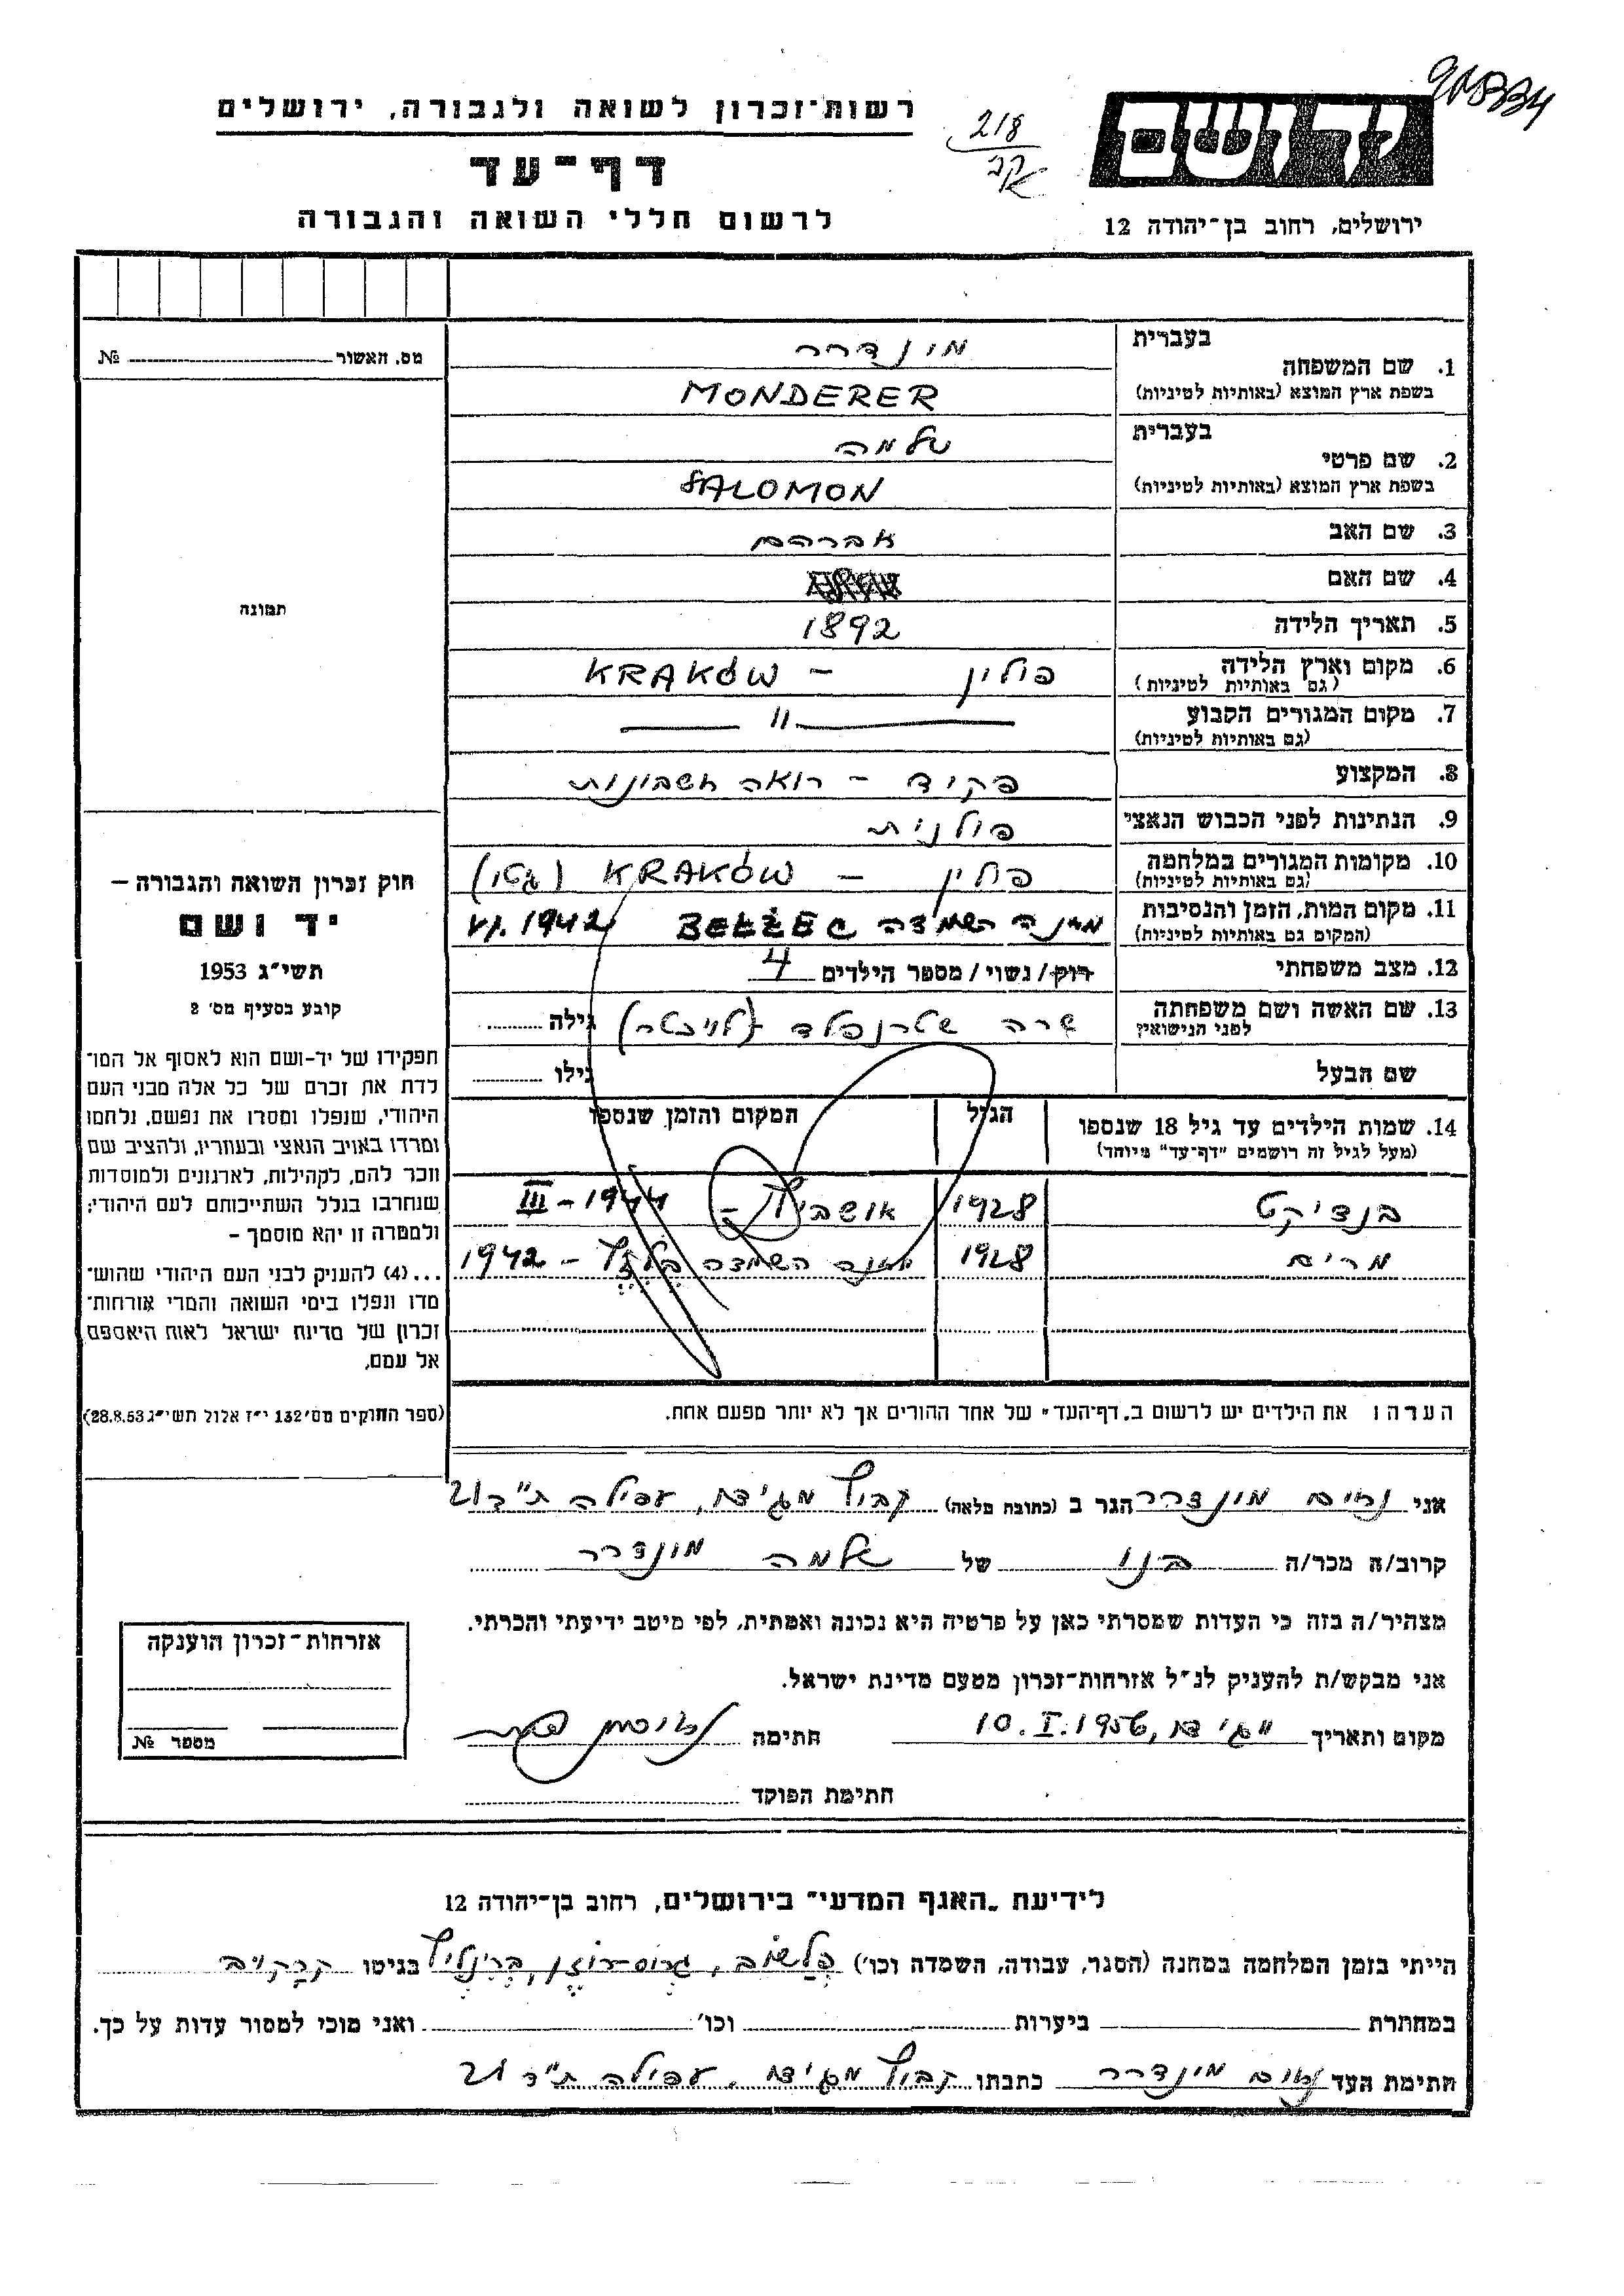 רשות־זכרון לשואה ולגבורה, ירושלים
דף־עד
לרשום חללי השואה והגבורה
218
ידושם
ירושלים, רחוב בן־יהודה 12
מס. האשור № 
בעברית
מונדרר
1. שם המשפחה
בשפת ארץ המוצא (באותיות לטיניות)
MONDERER
בעברית
שלמה
2. שם פרטי
בשפת ארץ המוצא (באותיות לטיניות)
SALOMON
3. שם האב אברהם
4. שם האם
5. תאריך הלידה 1892
6. מקום וארץ הלידה פולין – KRAKÓW
(גם באותיות לטיניות)
7. מקום המגורים הקבוע — 〃 —
(גם באותיות לטיניות)
8. המקצוע פקיד – רואה חשבונות
9. הנתינות לפני הכבוש הנאצי פולנית
10. מקומות המגורים במלחמה פולין – KRAKÓW (גטו)
(גם באותיות לטיניות)
11. מקום המות, הזמן והנסיבות מחנה השמדה BEŁŻEC VI.1942
(המקום גם באותיות לטיניות)
12. מצב משפחתי רוק/נשוי/ מספר הילדים 4
13. שם האשה ושם משפחתה שרה שטרנפלד גילה
לפני הנישואין
שם הבעל גילו
14. שמות הילדים עד גיל 18 שנספו הגיל המקום והזמן שנספו
(מעל לגיל זה רושמים "דף־עד" מיוחד)
בנדיקט 1928 אושביץ – 1944 – III
מרים 1928 מחנה השמדה בלזץ – 1942
הערה: את הילדים יש לרשום ב„דף־העד" של אחד ההורים אך לא יותר מפעם אחת.
תמונה
חוק זכרון השואה והגבורה –
יד ושם
תשי"ג 1953
קובע בסעיף מס' 2
תפקידו של יד-ושם הוא לאסוף אל המו־
לדת את זכרם של כל אלה מבני העם
היהודי, שנפלו ומסרו את נפשם, נלחמו
ומרדו באויב הנאצי ובעוזריו, ולהציב שם
וזכר להם, לקהילות, לארגונים ולמוסדות
שנחרבו בגלל השתייכותם לעם היהודי;
ולמטרה זו יהא מוסמך –
...(4) להעניק לבני העם היהודי שהוש־
מדו ונפלו בימי השואה והמרי אזרחות־
זכרון של מדינת ישראל לאות היאספם
אל עמם,
(ספר החוקים מס' 132 י"ז אלול תשי"ג 28.8.53)
אני מונדרר הגר ב (כתובת מלאה) קבוץ מגידו, עפולה ת"ד 21
קרוב/ה מכר/ה בנו של שלמה מונדרר
מצהיר/ה בזה כי העדות שמסרתי כאן על פרטיה היא נכונה ואמתית, לפי מיטב ידיעתי והכרתי.
אני מבקש/ת להעניק לנ"ל אזרחות־זכרון מטעם מדינת ישראל.
מקום ותאריך מגידו, 10.I.1956 חתימה
חתימת הפוקד
אזרחות־זכרון הוענקה
מספר №
לידיעת „האגף המדעי" בירושלים, רחוב בן־יהודה 12
הייתי בזמן המלחמה במחנה (הסגר, עבודה, השמדה וכו') פלשוב, גרוס־רוזן, ברינליץ בגיטו קרקוב
במחתרת ביערות וכו' ואני מוכן למסור עדות על כך.
חתימת העד מונדרר כתבתו קבוץ מגידו, עפולה ת"ד 21